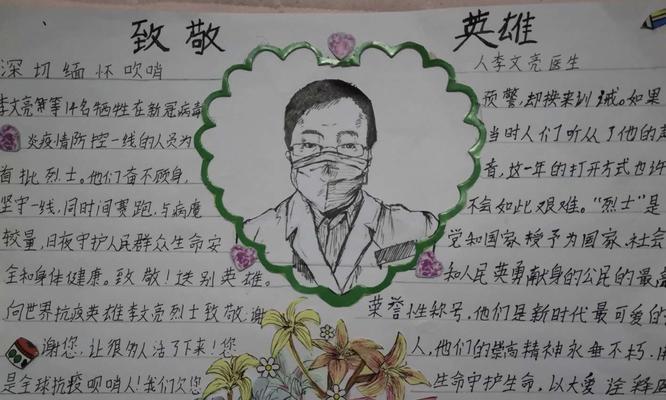 致敬 英雄
深切缅怀吹哨
人李文亮医生
李文亮等等14名牺牲在新冠病毒
炎疫情防控一线的人员为
首批烈士。他们奋不顾身,
坚守一线,同时间赛跑,与病魔
较量,日夜守护人民群众生命安
全和身体健康。致敬!送别英雄。
向世界抗疫英雄李文亮烈士致敬,谢
谢您,让很多人活了下来!您
是全球抗疫吹哨人!我们欠您
预警,却换来训诫。如果
当时人们听从了他的声
音,这一年的打开方式也许
不会如此艰难。“烈士”是
党和国家授予为国家、社会
和人民英勇献身的公民的最高
荣誉性称号,他们是新时代最可爱的
人,他们的崇高精神永垂不朽,用
生命守护生命,以大爱诠释